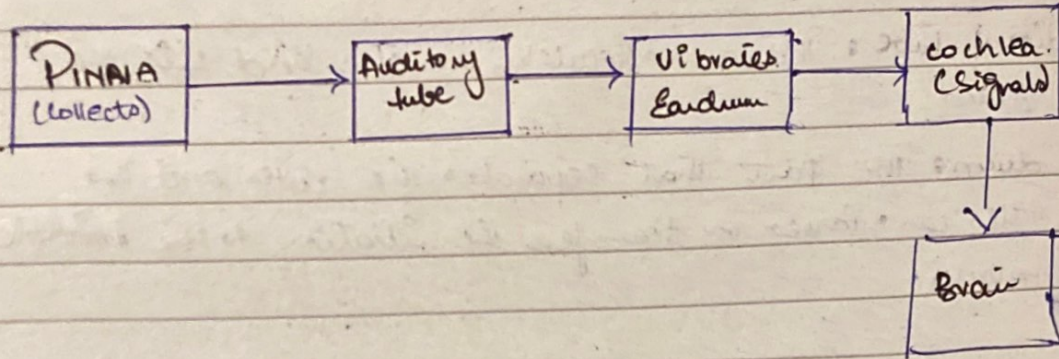 PINNA
(Collects)
Auditory
tube
Vibrates
Eardrum
cochlea.
(signals)
Brain